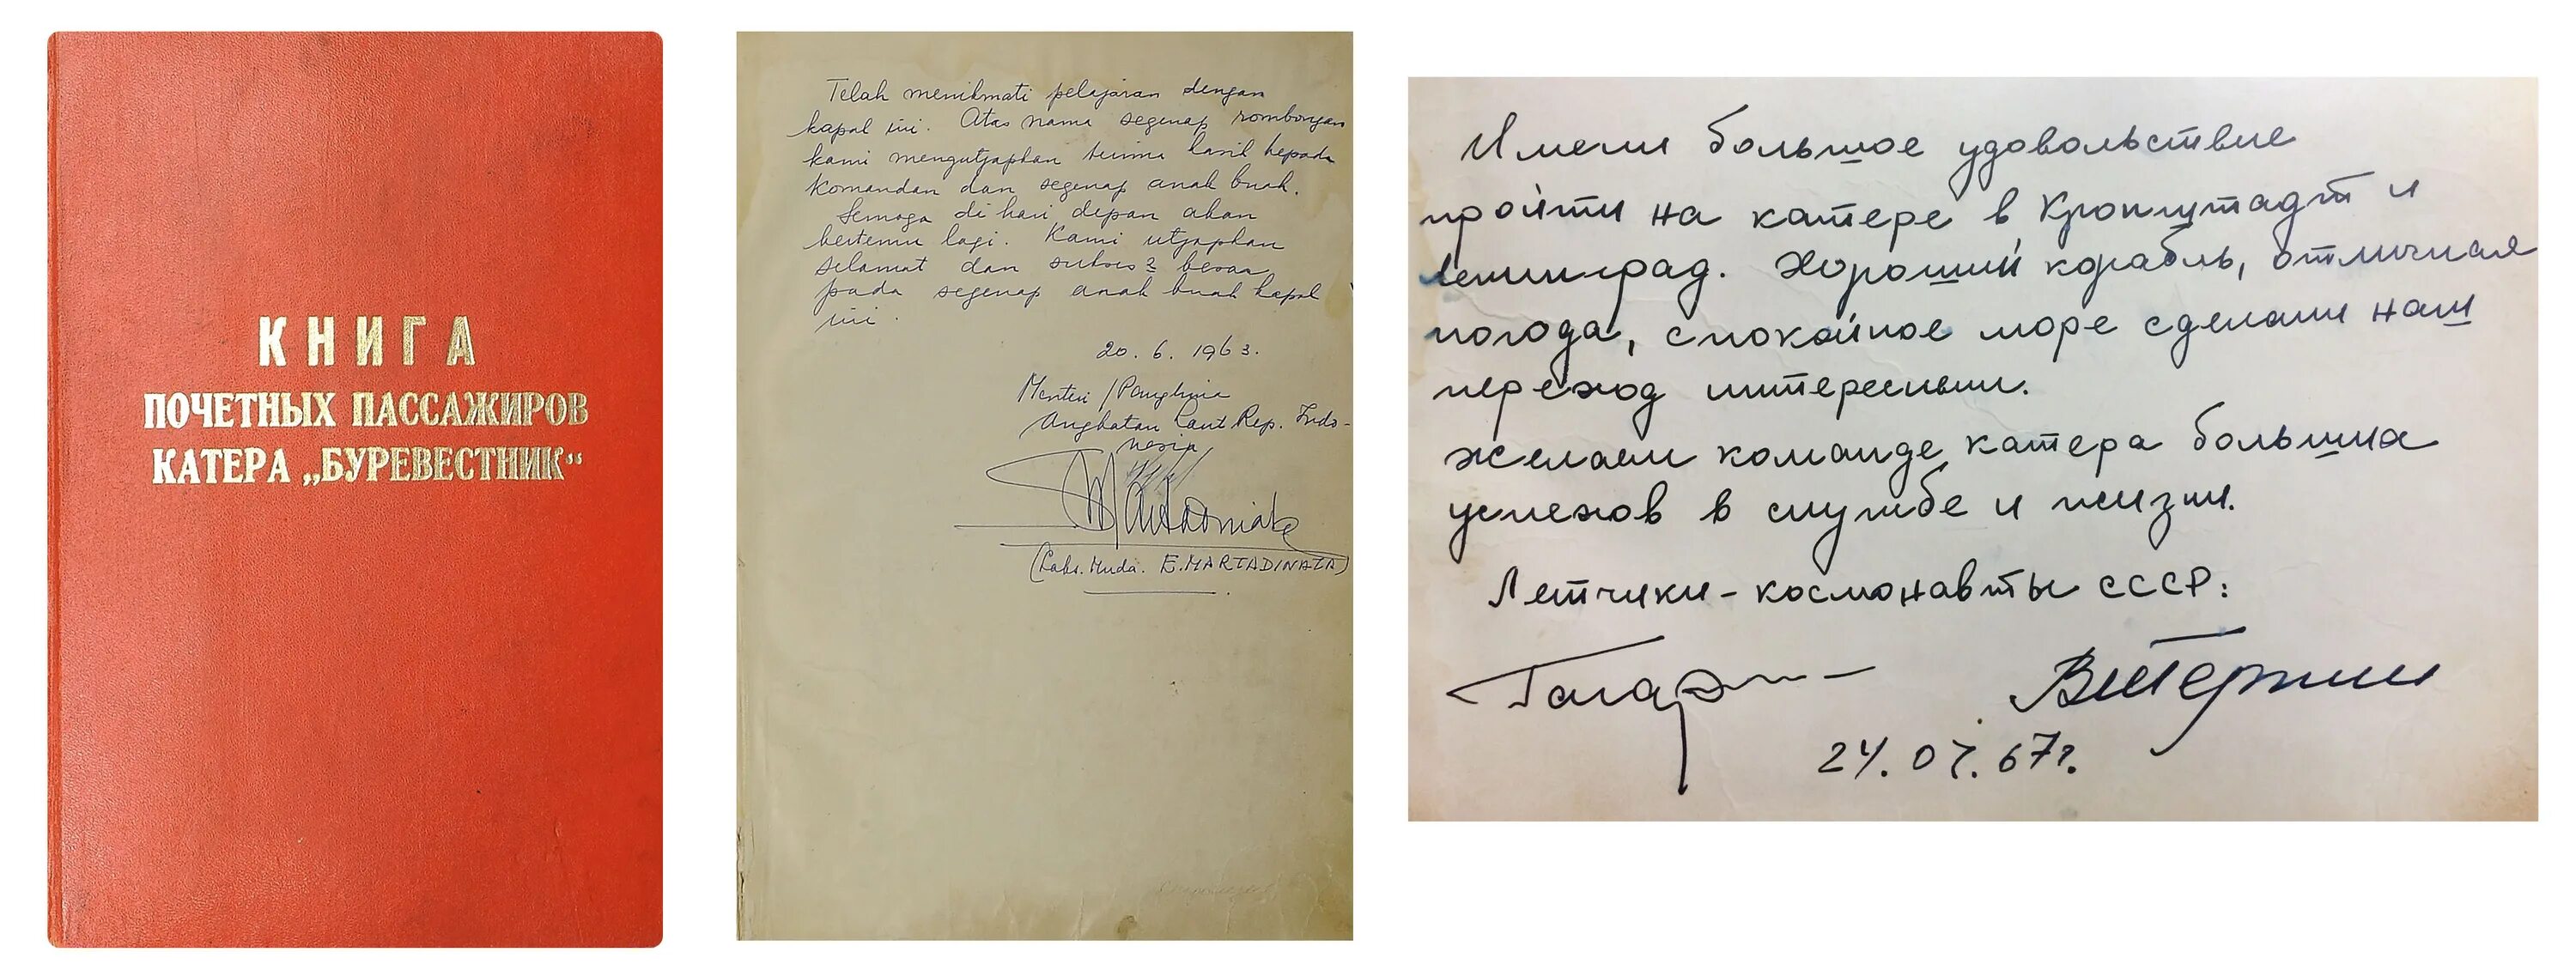 КНИГА
ПОЧЕТНЫХ ПАССАЖИРОВ
КАТЕРА „БУРЕВЕСТНИК“
Telah menikmati pelajaran dengan
kapal ini. Atas nama segenap rombongan
kami mengutjapkan terima kasih kepada
Komandan dan segenap anak buah.
Semoga di hari depan akan
bertemu lagi. Kami utjapkan
selamat dan sukses2 besar
pada segenap anak buah kapal
ini.
20. 6. 1963.
Menteri / Panglima
Angkatan Laut Rep. Indo-
nesia
(Laks. Muda. E. MARTADINATA)
Имели большое удовольствие
пройти на катере в Кронштадт и
Ленинград. Хороший корабль, отличная
погода, спокойное море сделали наш
переход интересным.
Желаем команде катера больших
успехов в службе и жизни.
Летчики-космонавты СССР:
Гагарин
24.07.67г.